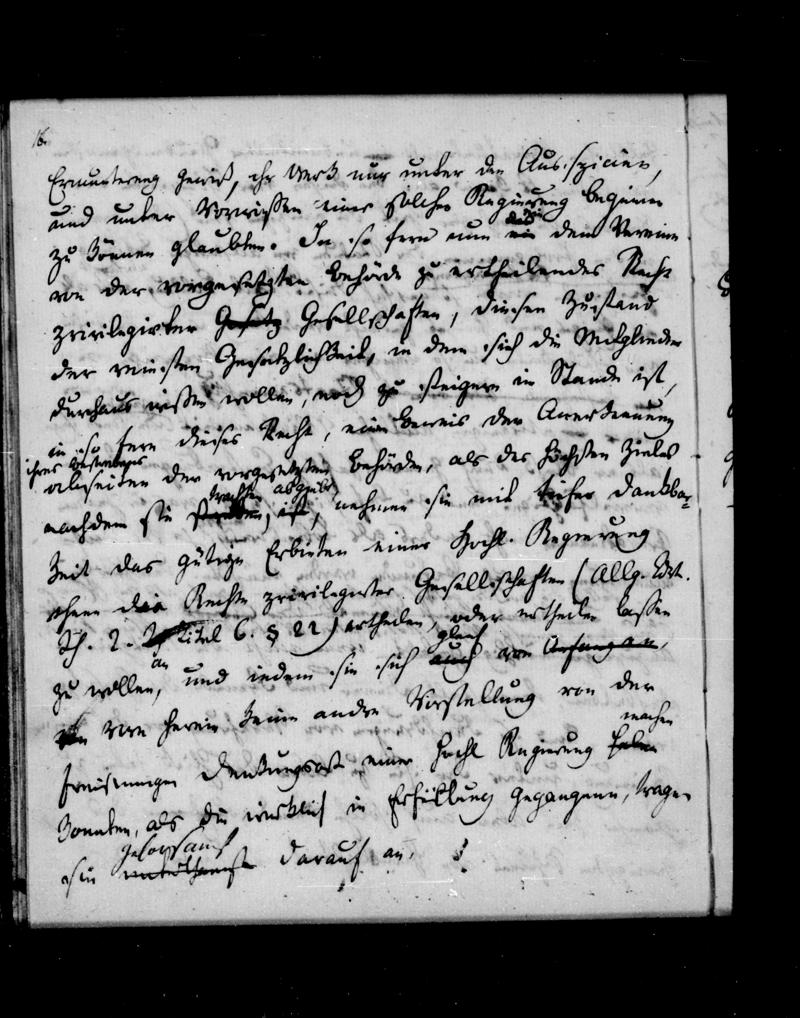 16.
Ermunterung gewiß, ihr Werk nur unter den Auspicien,
und unter Vorwissen einer solchen Regierung beginnen
zu können glaubten. In so fern nun ein das dem Vereine
von der vorgesetzten Behörde zu ertheilendes Recht
privilegirter Gesetz Gesellschaften, diesen Zustand
der reinsten Gesetzlichkeit, in dem sich die Mitglieder
durchaus wissen wollen, noch zu steigern im Stande ist,
in so fern dieses Recht, einen Beweis der Anerkennung
ihres Bestrebens
abseiten der vorgesetzten Behörde, als des höchsten Zieles
trachten abgiebt
nachdem sie streben, ist, nehmen sie mit tiefer Dankbar-
keit das gütige Erbieten einer Hochl. Regierung
ihnen die Rechte privilegirter Gesellschaften (Allg. Ldr.
Th. 2. Titel 6. § 22) ertheilen, oder ertheilen lassen
zu wollen, an, und indem sie sich auch gleich von Anfang an,
von herein keine andre Vorstellung von der
machen
freisinnigen Denkungsart einer Hochl Regierung haben
konnten, als die wirklich in Erfüllung gegangene, tragen
gehorsamst
sie unterthänigst darauf an,